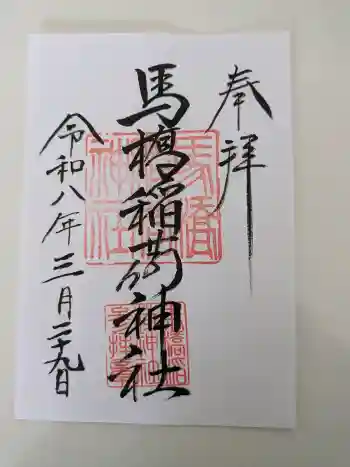 奉拝
馬橋稲荷神社
令和八年三月二十九日